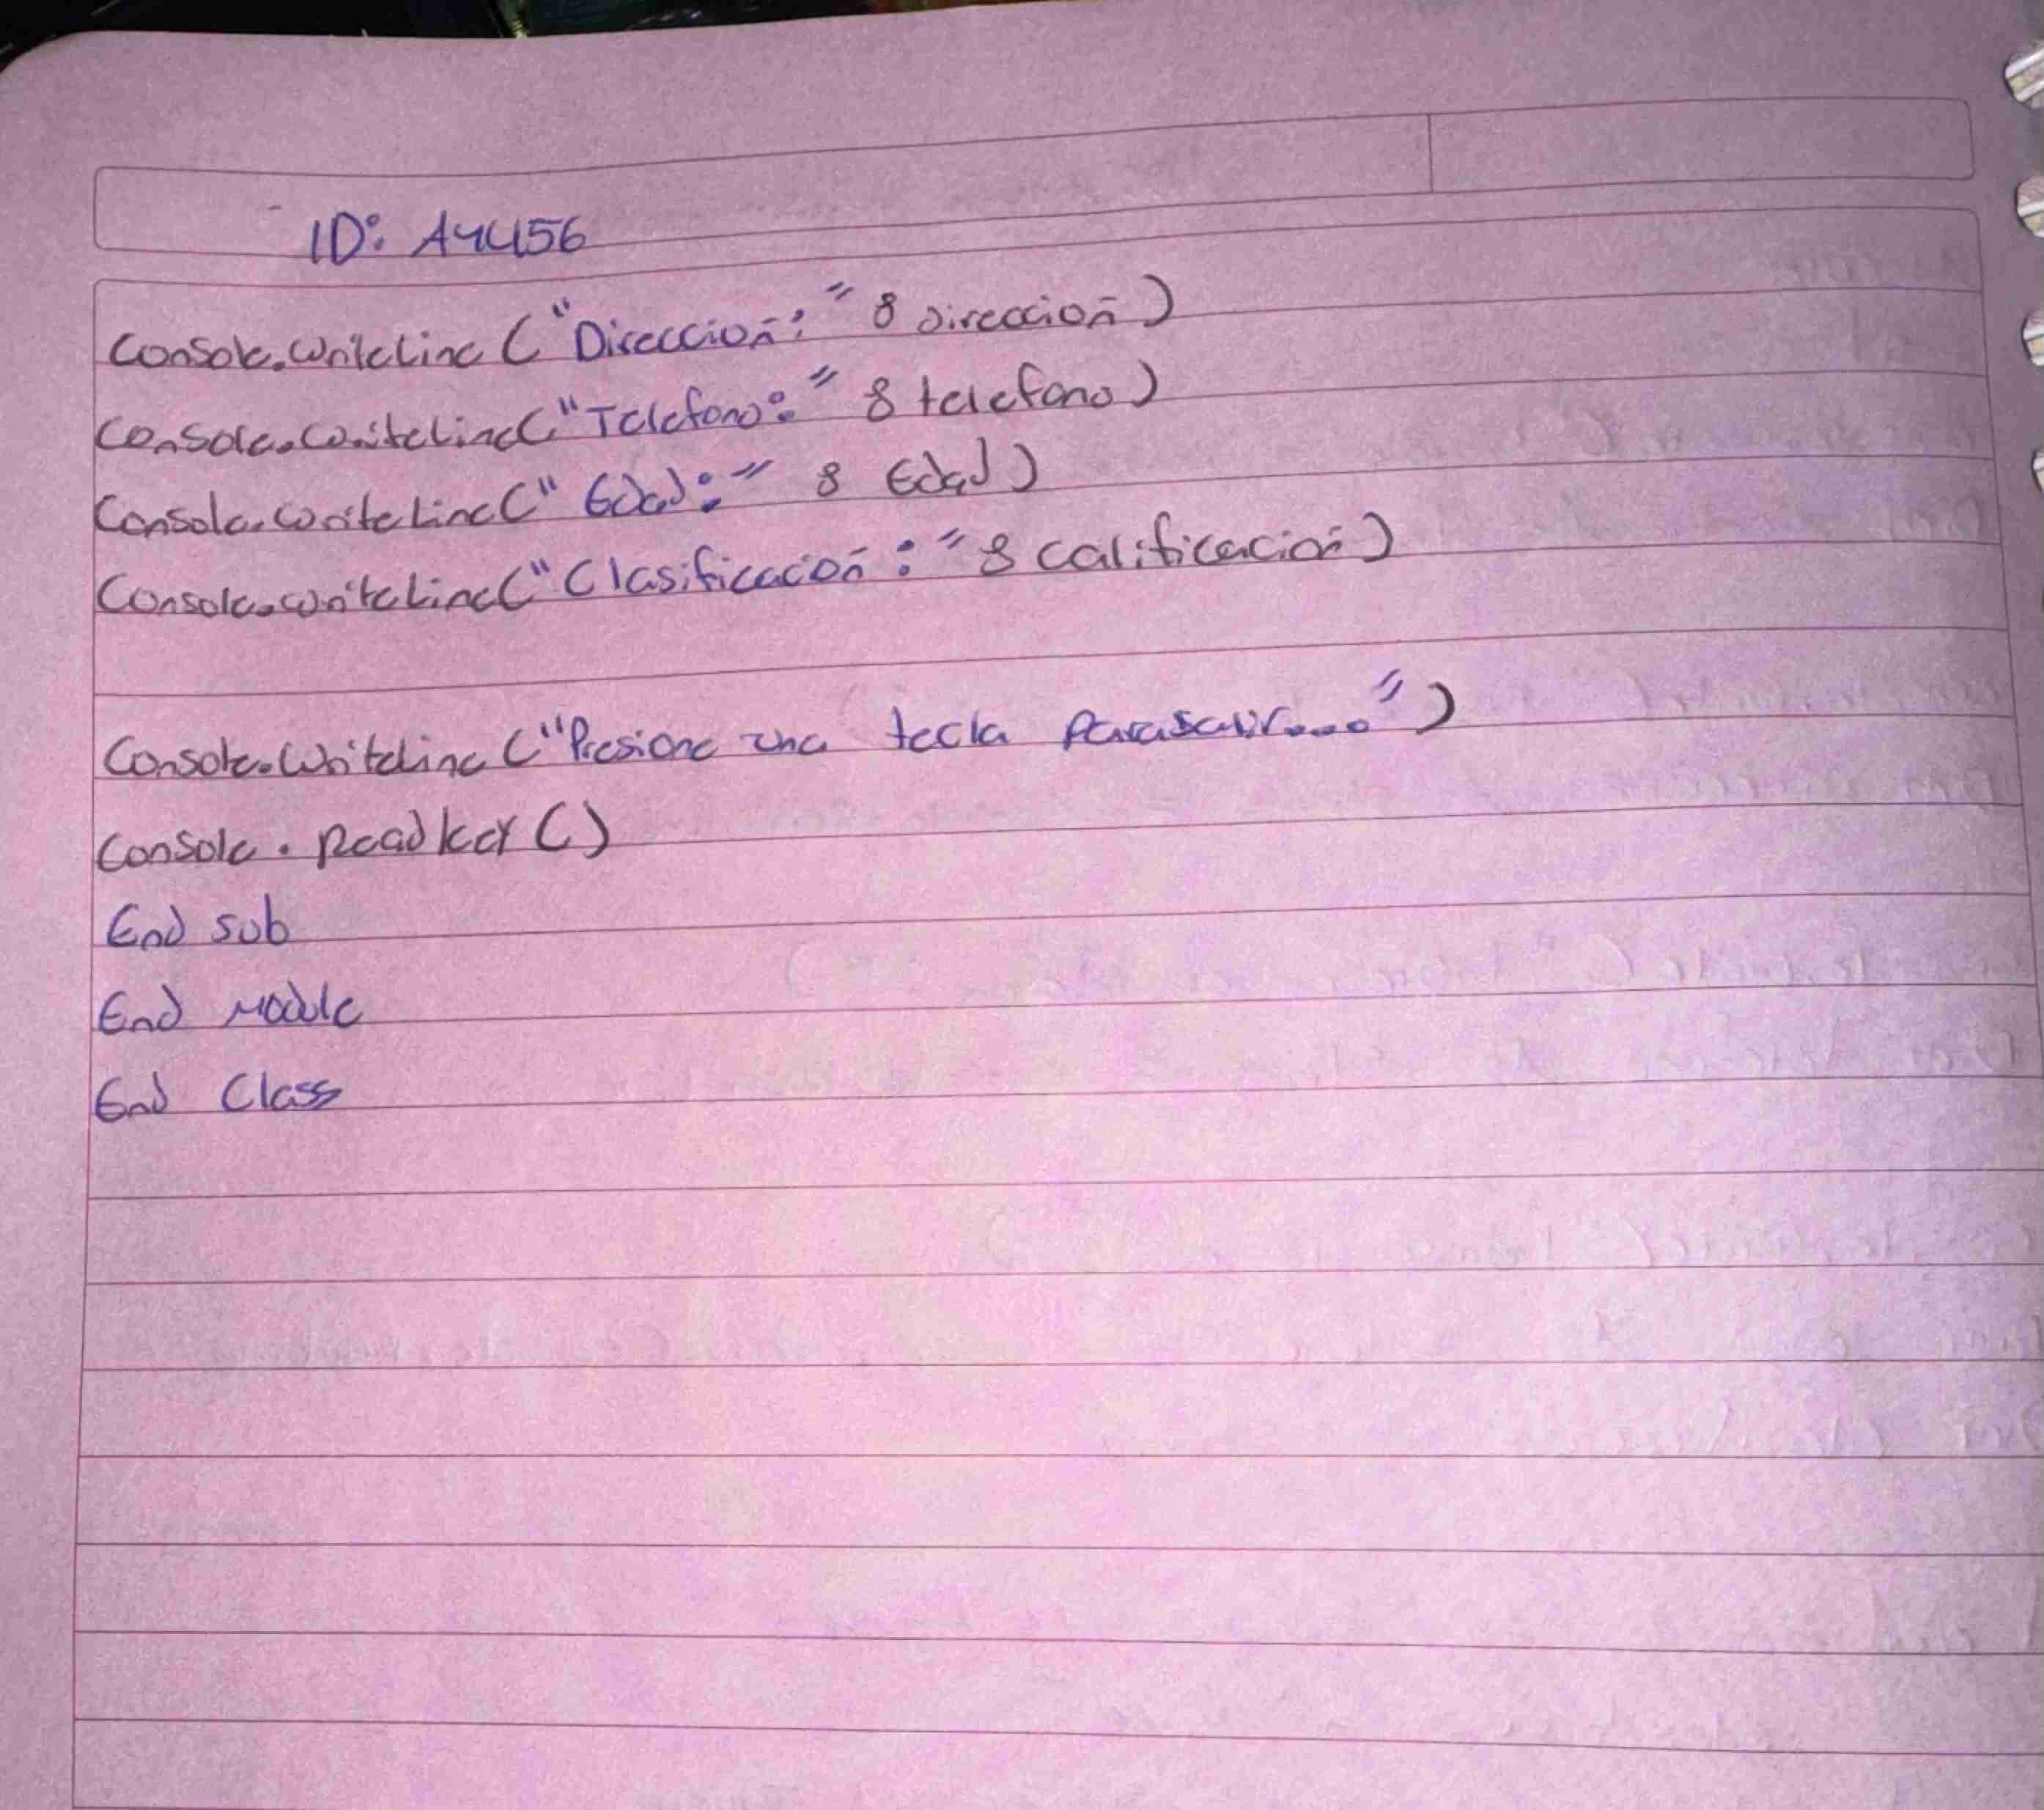 ID: A44456
Console.WriteLine ("Direccion:" & Direccion)
Console.WriteLine("Telefono:" & telefono)
Console.WriteLine(" Edad:" & Edad)
Console.WriteLine("Clasificacion:" & Calificacion)
Console.WriteLine ("Presione una tecla para salir....")
Console.ReadKey ()
End sub
End Module
End Class